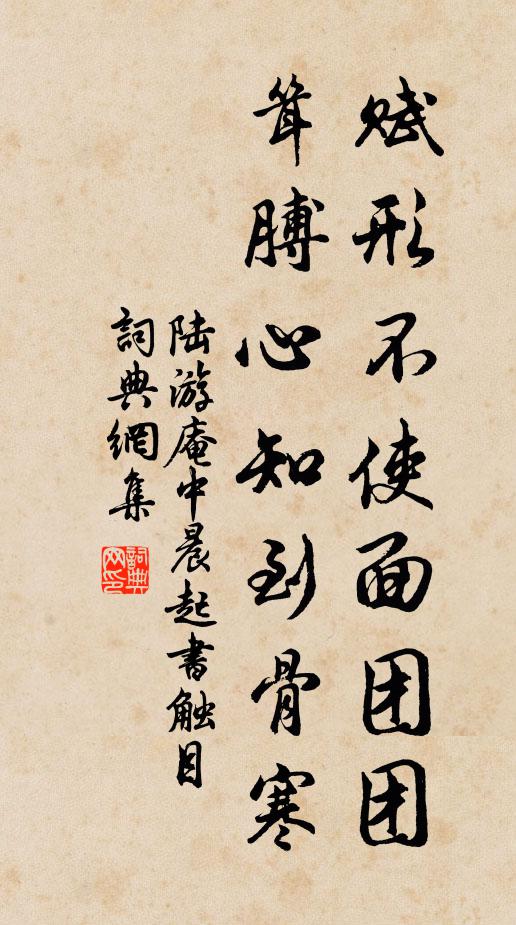 赋形不使面团团
耸膊心知到骨寒
陆游庵中晨起书触目
詞典網集
詞典网印